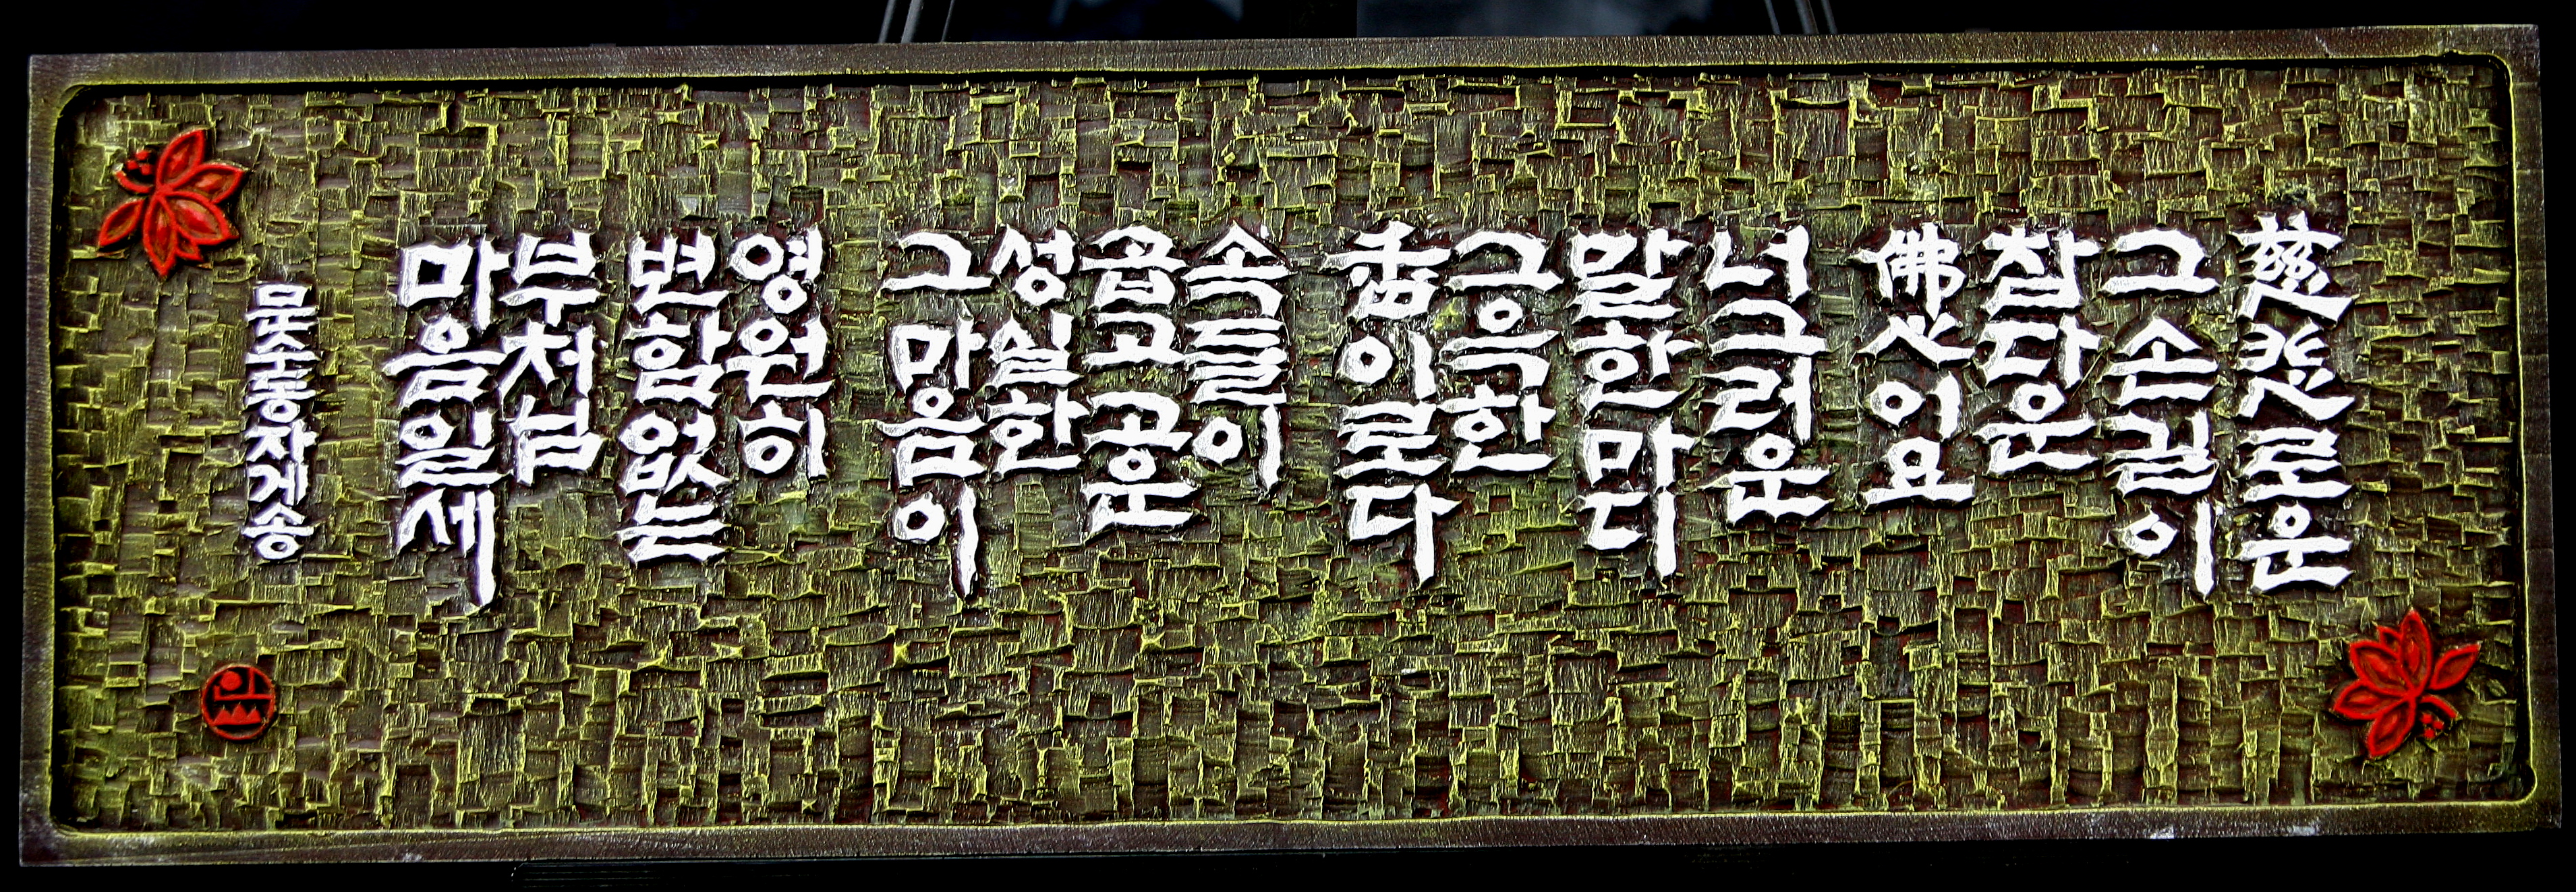 慈悲로운
그손길이
참다운
佛心이요
너그러운
말한마디
그윽한
香이로다
속들이
곱고고운
성실한
그마음이
영원히
변함없는
부처님
마음일세
문수동자게송